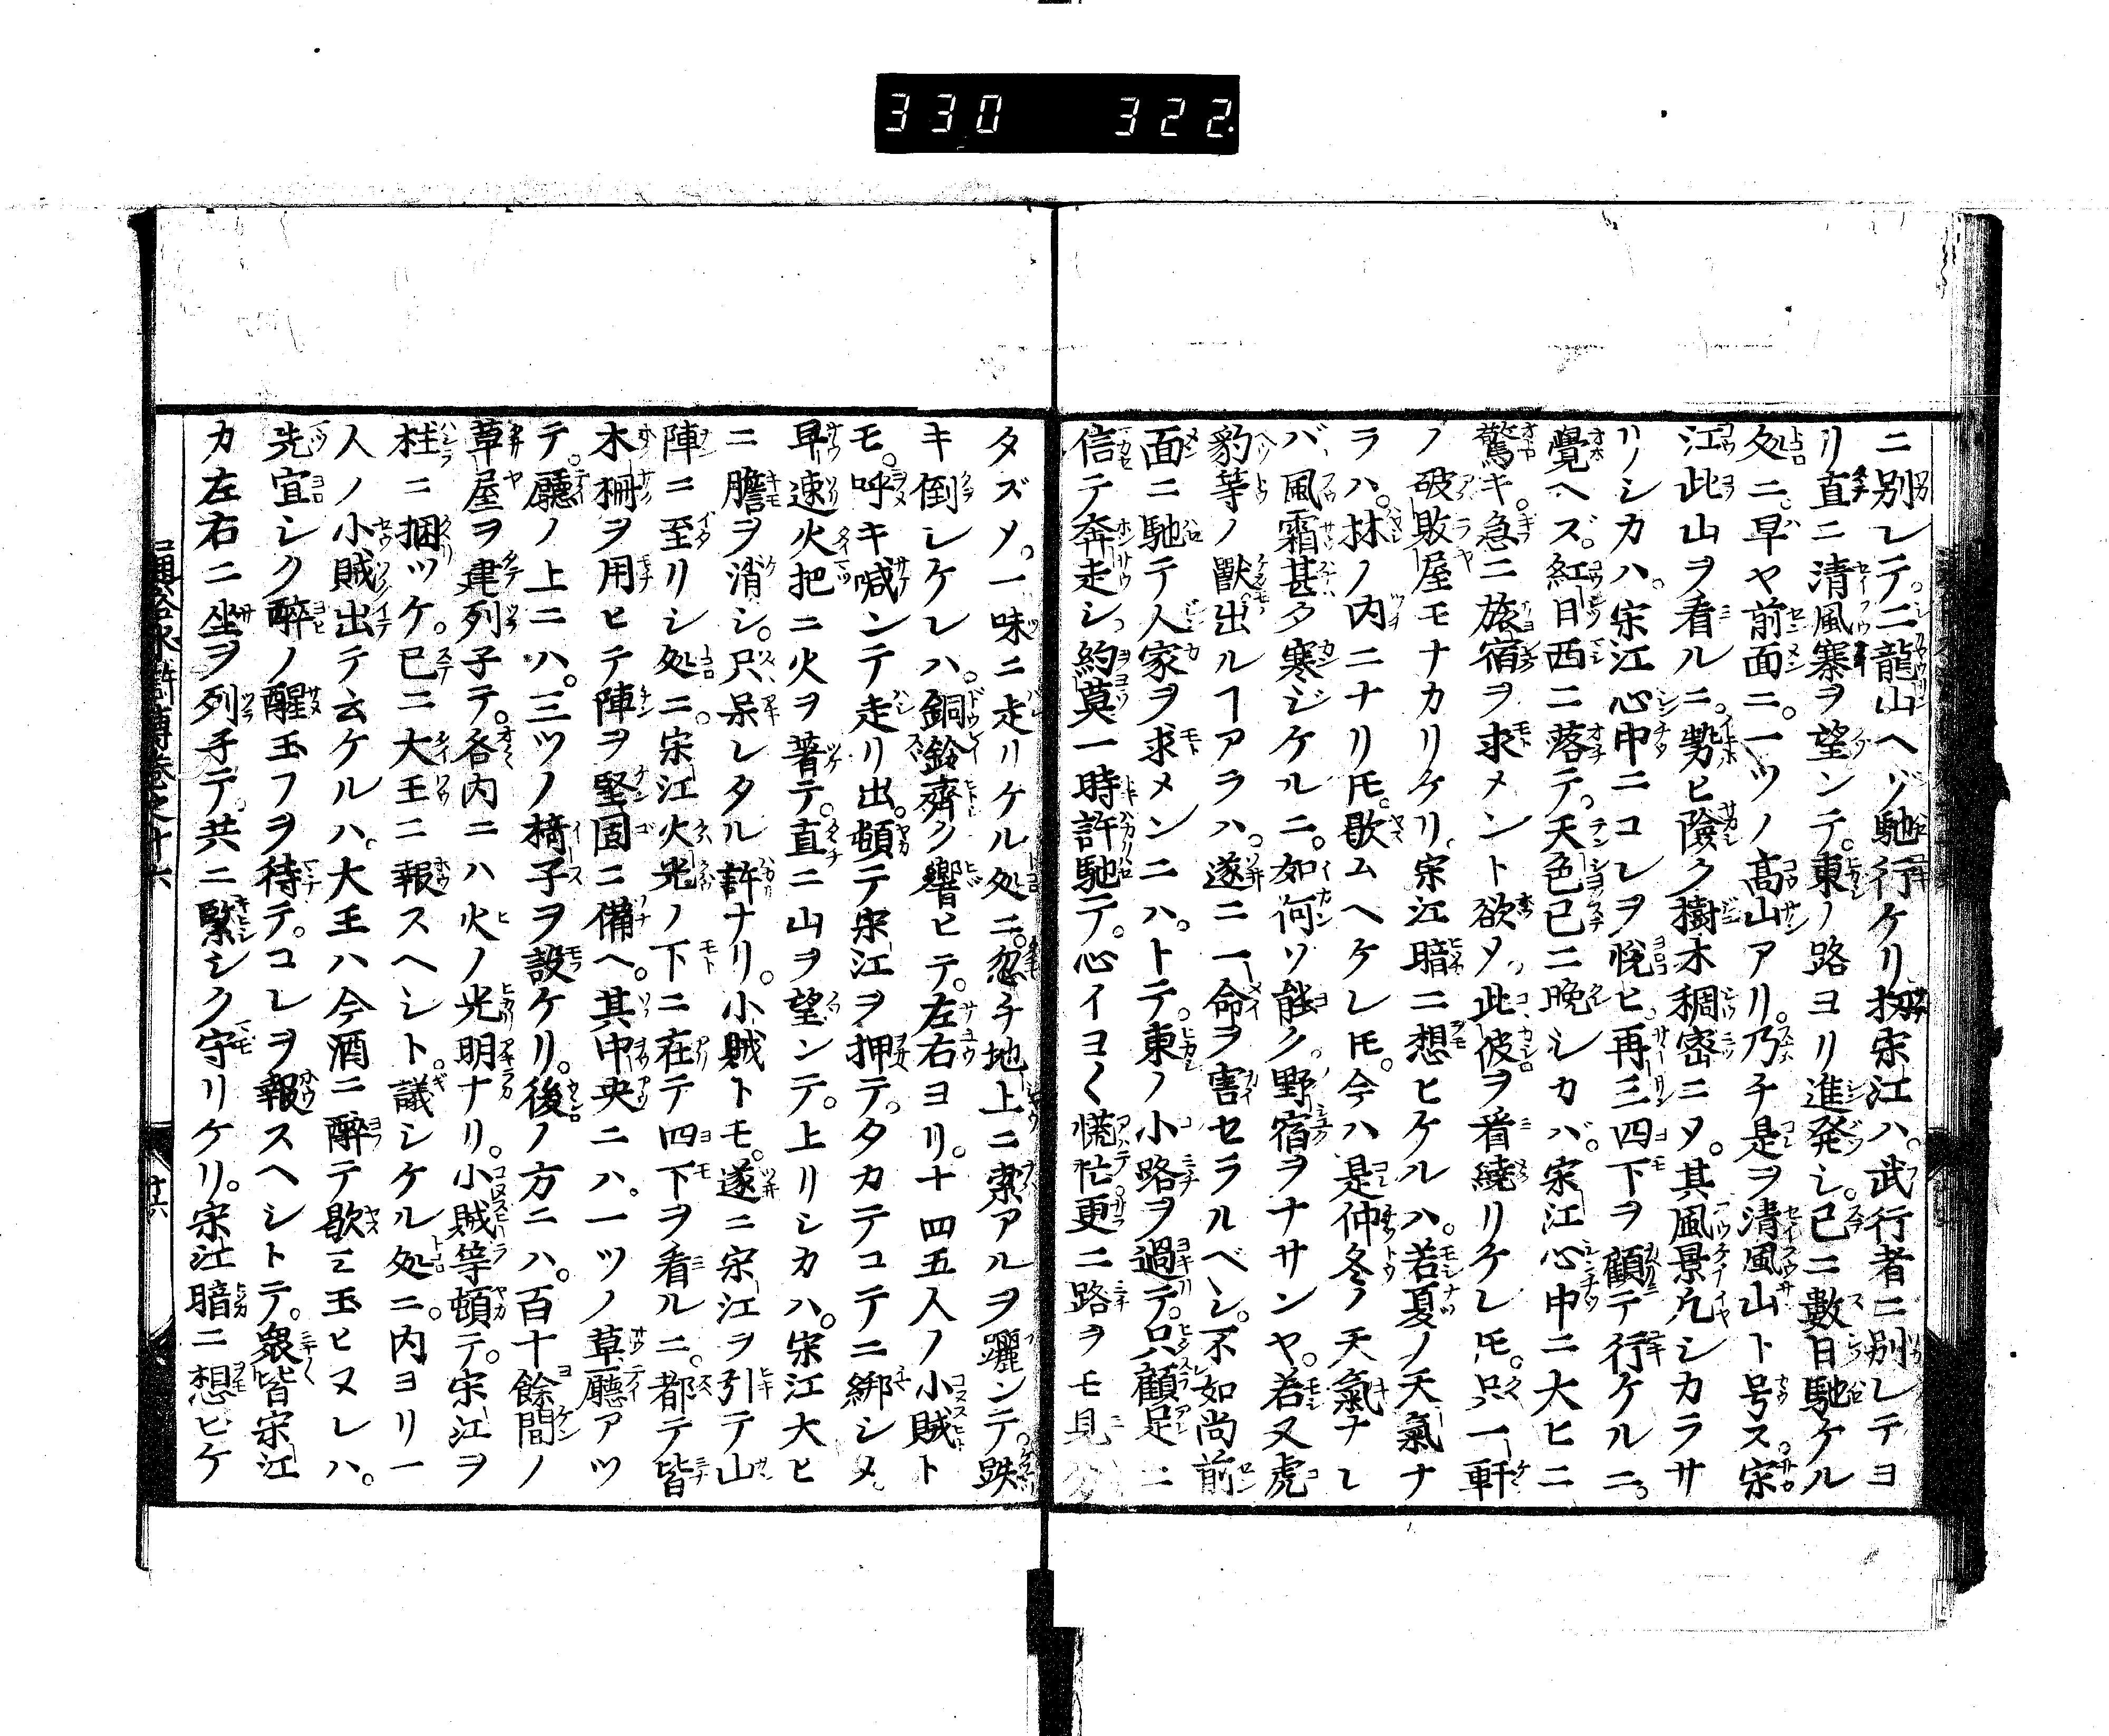 330 322.
ニ別レテ。二龍山ヘゾ馳行ケリ扨宋江ハ。武行者ニ別レテヨ
リ直ニ清風寨ヲ望ンテ。東ノ路ヨリ進発シ。已ニ數日馳ケル
処ニ。早ヤ前面ニ。一ツノ高山アリ。乃チ是ヲ清風山ト号ス。宋
江此山ヲ看ルニ。勢ヒ險ク樹木稠密ニメ。其風景凢シカラサ
リシカハ。宋江心中ニコレヲ悅ヒ。再三四下ヲ顧テ行ケルニ。
覺ヘズ。紅日西ニ落テ。天色已ニ晩シカバ。宋江心中ニ大ヒニ
驚キ。急ニ旅宿ヲ求メント欲メ。此彼ヲ看繞リケレ𪜈。只一軒
ノ破敗屋モナカリケリ。宋江暗ニ想ヒケルハ。若夏ノ天氣ナ
ラハ。林ノ内ニナリ𪜈。歇ムヘケレ𪜈。今ハ是仲冬ノ天氣ナレ
バ。風霜甚タ寒ジケルニ。如何ソ能ク。野宿ヲナサンヤ。若又虎
豹等ノ獸出ルヿアラハ。遂ニ一命ヲ害セラルベシ。不如尚前
面ニ馳テ人家ヲ求メンニハ。トテ。東ノ小路ヲ過テ。只顧足ニ
信テ奔走シ。約莫一時許馳テ。心イヨ〱慌忙更ニ路ヲモ見分
タズメ。一味ニ走リケル処ニ。忽チ地上ニ索アルヲ躧ンテ。跌
キ倒レケレハ。銅鈴齊ク響ヒテ。左右ヨリ。十四五人ノ小賊ト
モ。呼キ喊ンテ走リ出。頓テ宋江ヲ押テ。タカテコテニ綁シメ。
早速火把ニ火ヲ著テ。直ニ山ヲ望ンテ。上リシカハ。宋江大ヒ
ニ膽ヲ消シ。只呆レタル許ナリ。小賊トモ。遂ニ宋江ヲ引テ山
陣ニ至リシ処ニ。宋江火光ノ下ニ在テ四下ヲ看ルニ。都テ皆
木柵ヲ用ヒテ陣ヲ堅固ニ備ヘ。其中央ニハ。一ツノ草廳アツ
テ。廳ノ上ニハ。三ツノ椅子ヲ設ケリ。後ノ方ニハ。百十餘間ノ
草屋ヲ建列子テ。各内ニハ火ノ光明ナリ。小賊等頓テ。宋江ヲ
柱ニ捆ツケ。已ニ大王ニ報スヘシト。議シケル処ニ。内ヨリ一
人ノ小賊出テ云ケルハ。大王ハ今酒ニ醉テ歇ミ玉ヒヌレハ。
先宜シク醉ノ醒玉フヲ待テ。コレヲ報スヘシトテ。衆皆宋江
カ左右ニ坐ヲ列子テ。共ニ緊シク守リケリ。宋江暗ニ想ヒケ
通俗水滸傳卷之十六
十六